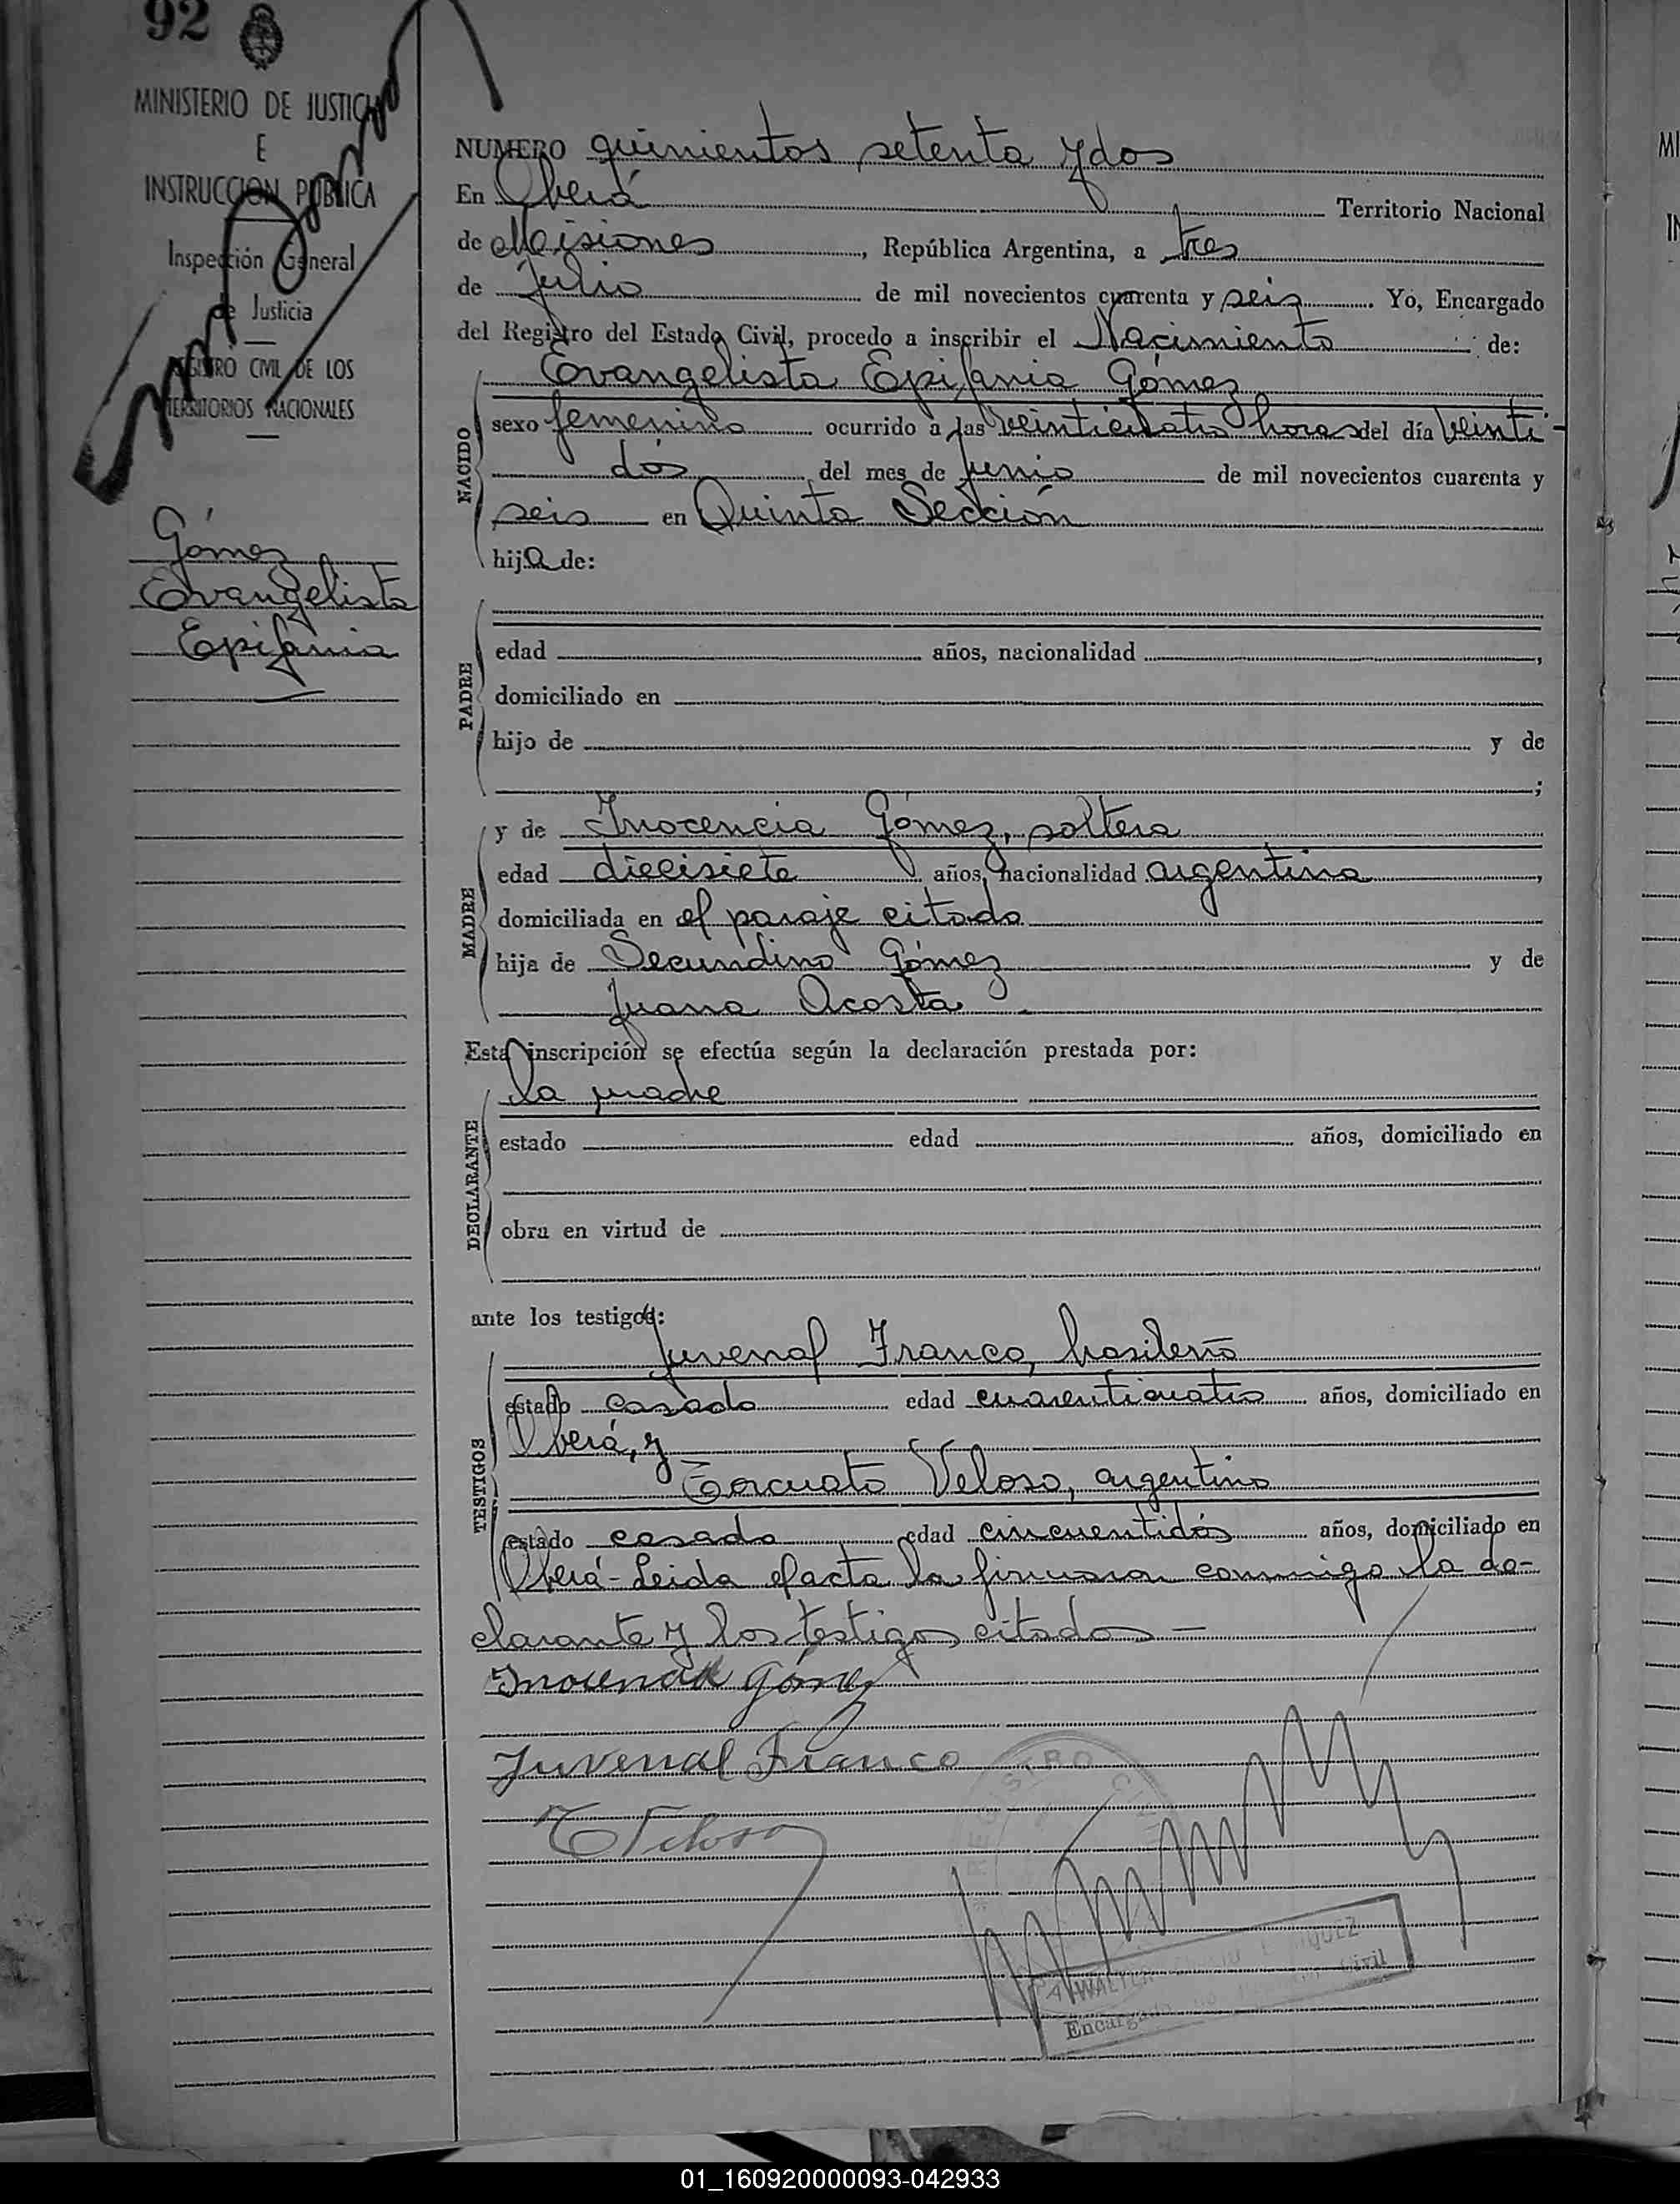 92
MINISTERIO DE JUSTICIA
E
INSTRUCCION PUBLICA
Inspección General
de Justicia
REGISTRO CIVIL DE LOS
TERRITORIOS NACIONALES
Gómez
Evangelista
Epifania
NUMERO quinientos setenta y dos
En Oberá Territorio Nacional
de Misiones, República Argentina, a tres
de Julio de mil novecientos cuarenta y seis. Yo, Encargado
del Registro del Estado Civil, procedo a inscribir el Nacimiento de:
NACIDO
Evangelista Epifania Gómez
sexo femenino ocurrido a las veinticuatro horas del día veinti-
dós del mes de junio de mil novecientos cuarenta y
seis en Quinta Sección
hija de:
PADRE
edad años, nacionalidad ,
domiciliado en
hijo de y de
;
MADRE
y de Inocencia Gómez, soltera
edad diecisiete años, nacionalidad argentina,
domiciliada en el paraje citado
hija de Secundino Gómez y de
Juana Acosta
Esta inscripción se efectúa según la declaración prestada por:
DECLARANTE
la madre
estado edad años, domiciliado en
obra en virtud de
ante los testigos:
TESTIGOS
Juvenal Franco, brasileño
estado casado edad cuarenticuatro años, domiciliado en
Oberá, y
Torcuato Veloso, argentino
estado casado edad cincuentidós años, domiciliado en
Oberá - Leida el acta la firmaron conmigo la de-
clarante y los testigos citados —
Inocencia Gómez
Juvenal Franco
T Veloso
REGISTRO CIVIL
WALTER
Encargado Civil
01_160920000093-042933